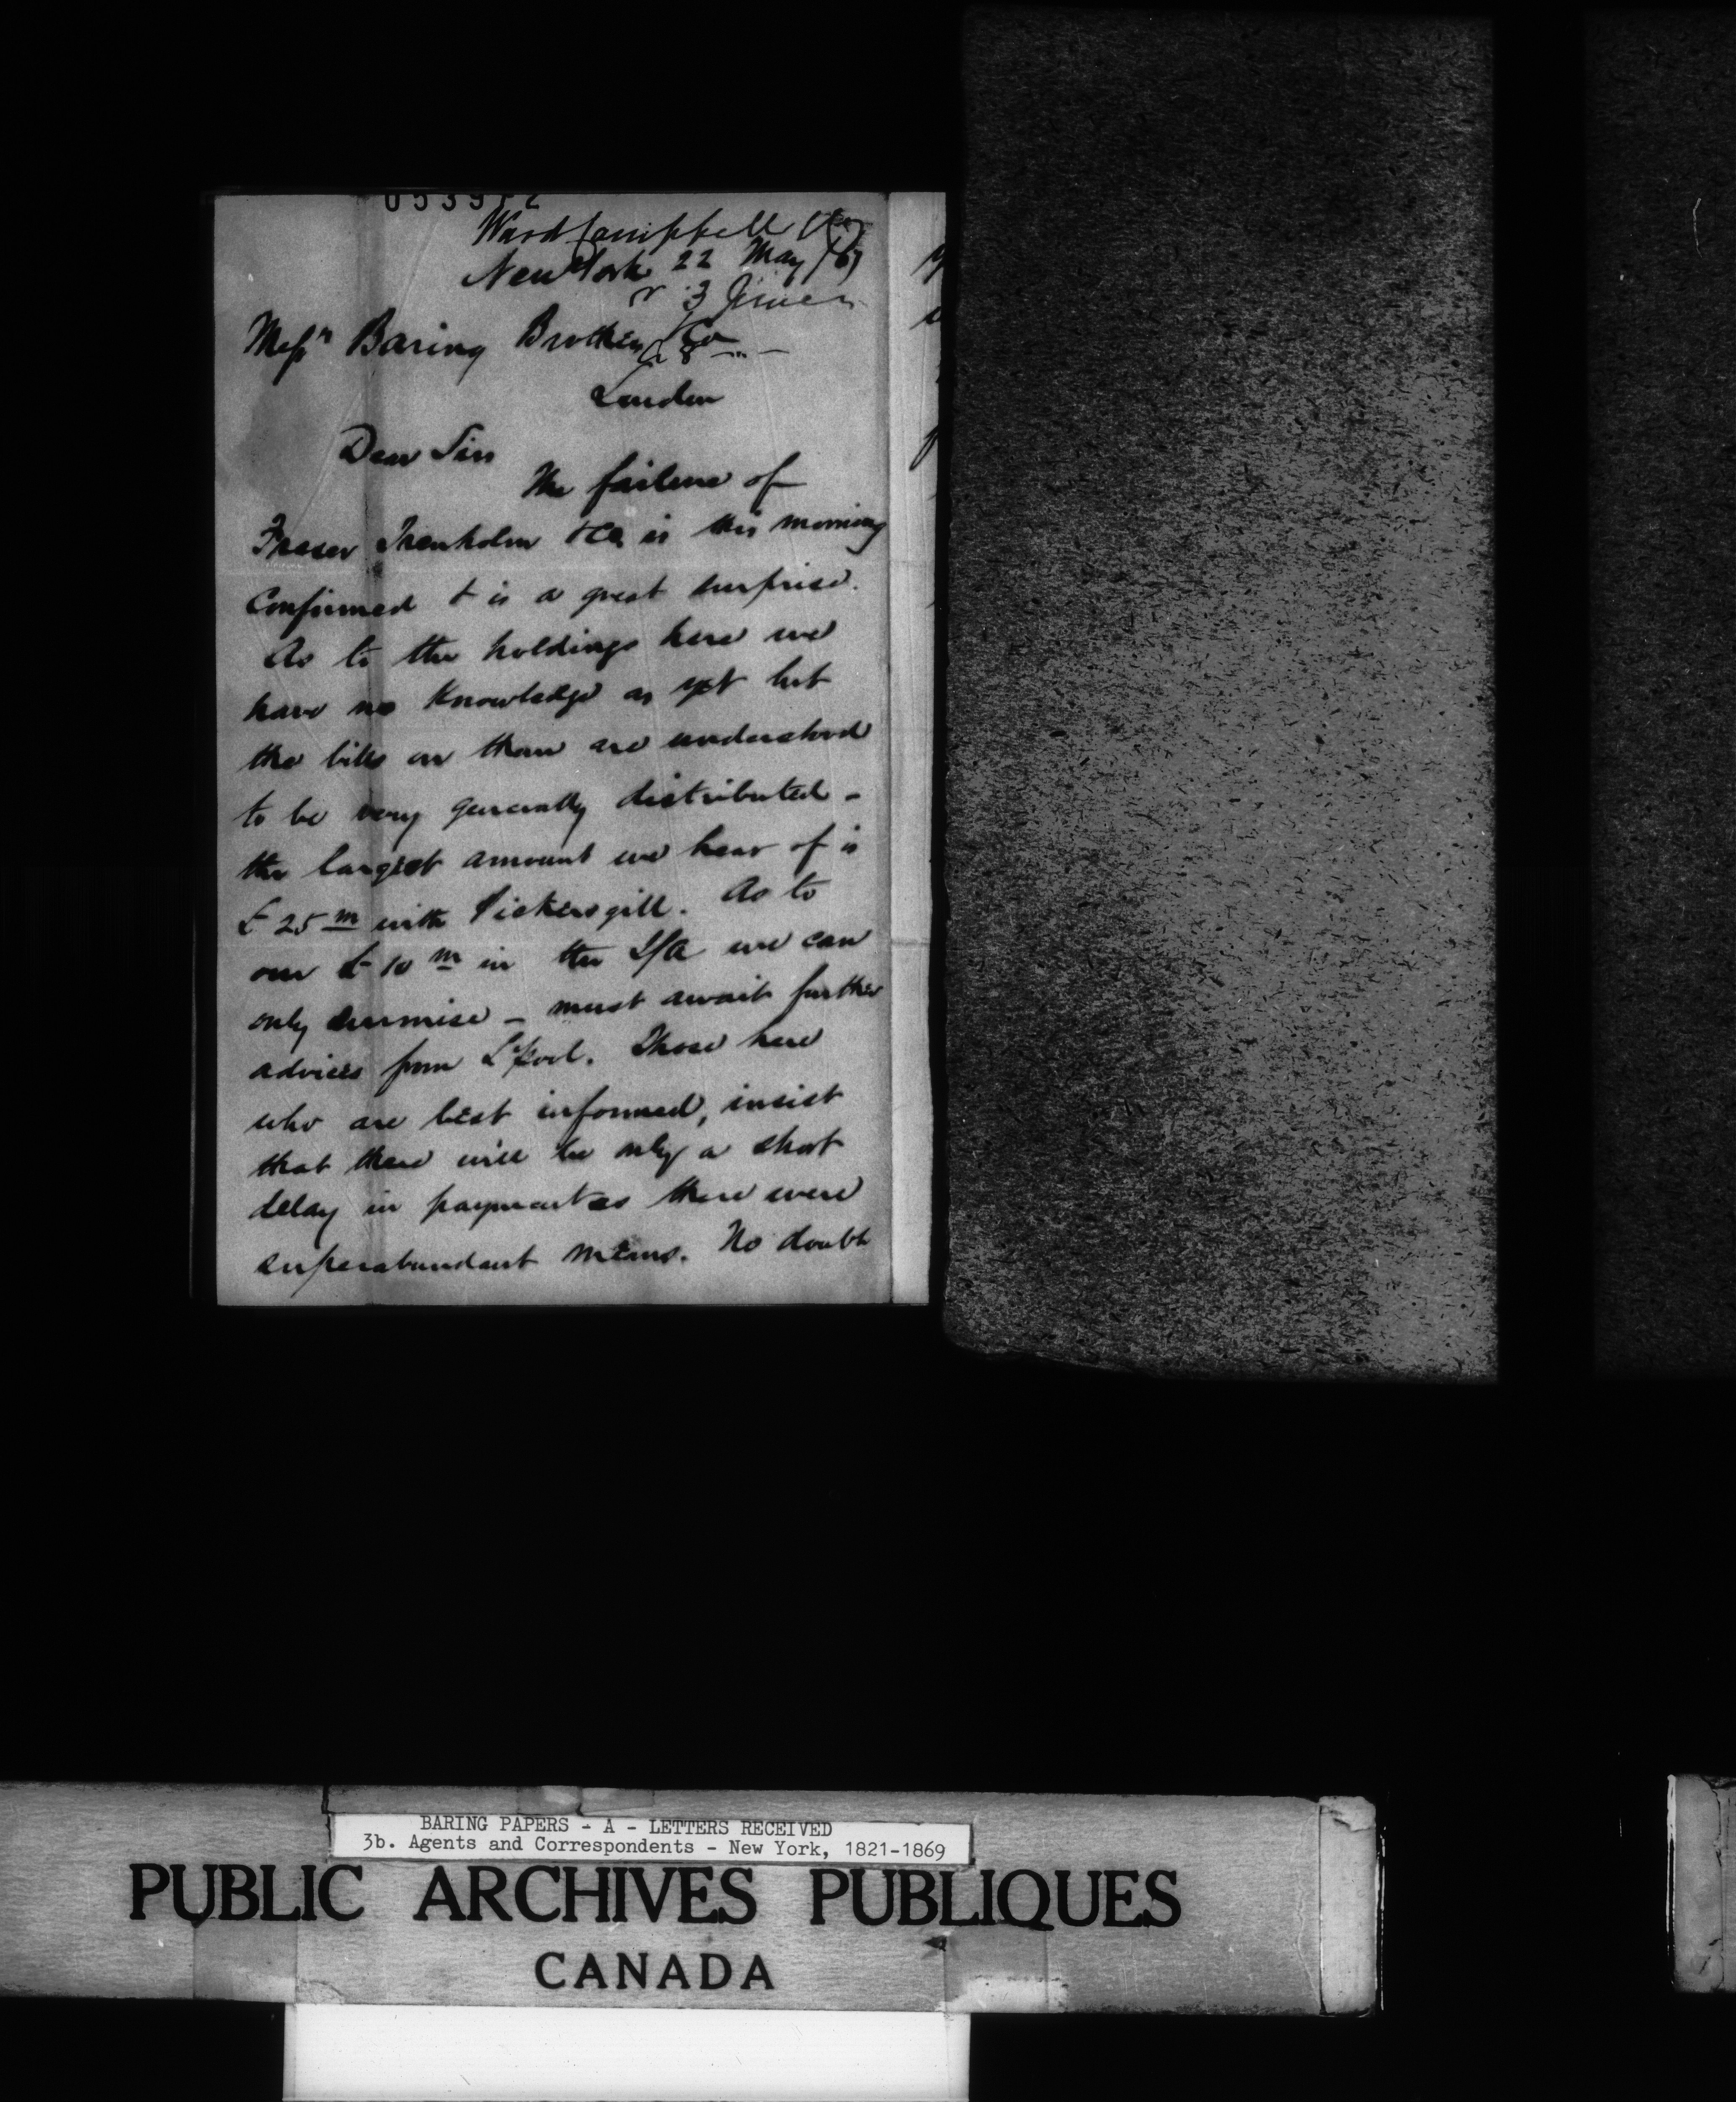 Ward Campbell & Co
New York 22 May /67
r 3 June
Messrs Baring Brothers & Co
A 8
London
Dear Sirs
The failure of
Fraser Trenholm & Co is this morning
confirmed & is a great surprise.
As to the holdings here we
have no knowledge as yet but
the bills on them are understood
to be very generally distributed -
the largest amount we hear of is
£25m with Pickersgill. As to
our £10m in the J/a we can
only surmise - must await further
advices from L'pool. Those here
who are best informed, insist
that there will be only a short
delay in payment as there were
superabundant means. No doubt
BARING PAPERS - A - LETTERS RECEIVED
3b. Agents and Correspondents - New York, 1821-1869
PUBLIC ARCHIVES PUBLIQUES
CANADA